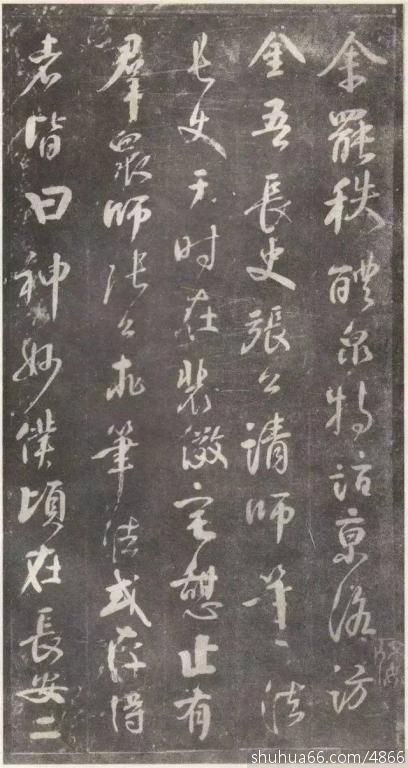 余罷秩醴泉特詣京洛訪
金吾長史張公請師筆法
長史于時在裴儆宅憩止有
羣眾師張公求筆法或存得
者皆曰神妙僕頃在長安二
shuhua66.com/4866